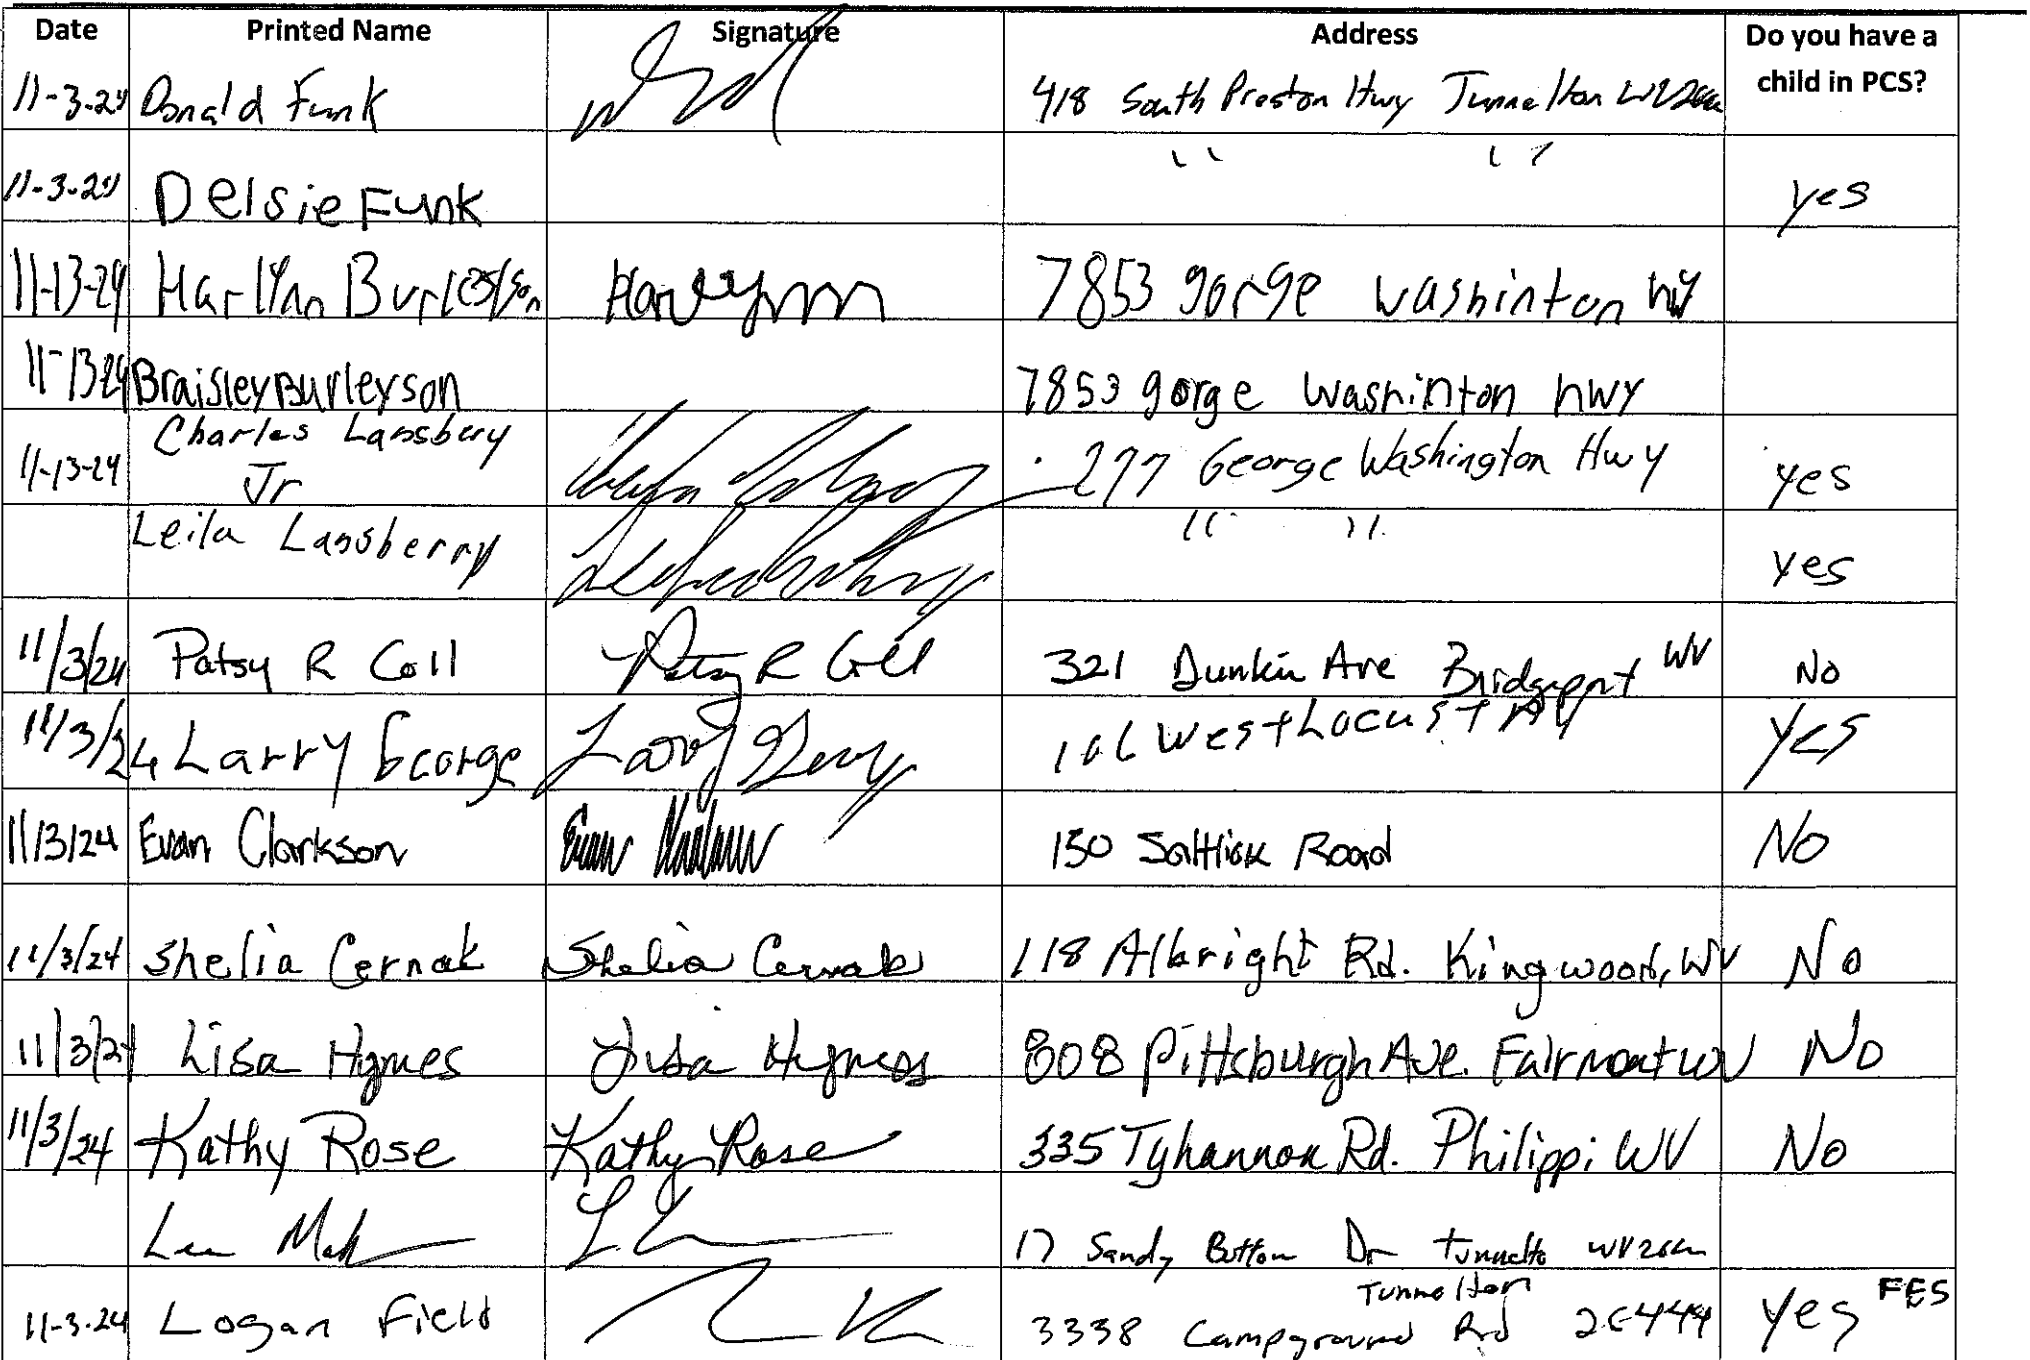 Date Printed Name Signature Address Do you have a child in PCS?
11-3-24 Donald Funk 418 South Preston Hwy Tunnelton WV
11-3-24 Delsie Funk " " yes
11-13-24 Harlynn Burleyson Harlynn 7853 gorge washinton hwy
11-13-24 Braisley Burleyson 7853 gorge washinton hwy
11-13-24 Charles Lansberry Jr 277 George Washington Hwy yes
Leila Lansberry " " yes
11/3/24 Patsy R Coll Patsy R Coll 321 Dunkin Ave Bridgeport WV No
11/3/24 Larry George Larry George West Locust Av Yes
11/3/24 Evan Clarkson Evan 150 Saltlick Road No
11/3/24 Shelia Cernak Shelia Cernak 118 Albright Rd. Kingwood, WV No
11/3/24 Lisa Hymes Lisa Hymes 808 Pittsburgh Ave. Fairmont WV No
11/3/24 Kathy Rose Kathy Rose 335 Tyhannon Rd. Philippi WV No
17 Sandy Bottom Dr Tunnelto WV
11-3-24 Logan Field 3338 Campground Rd Tunnelton 26444 yes FES